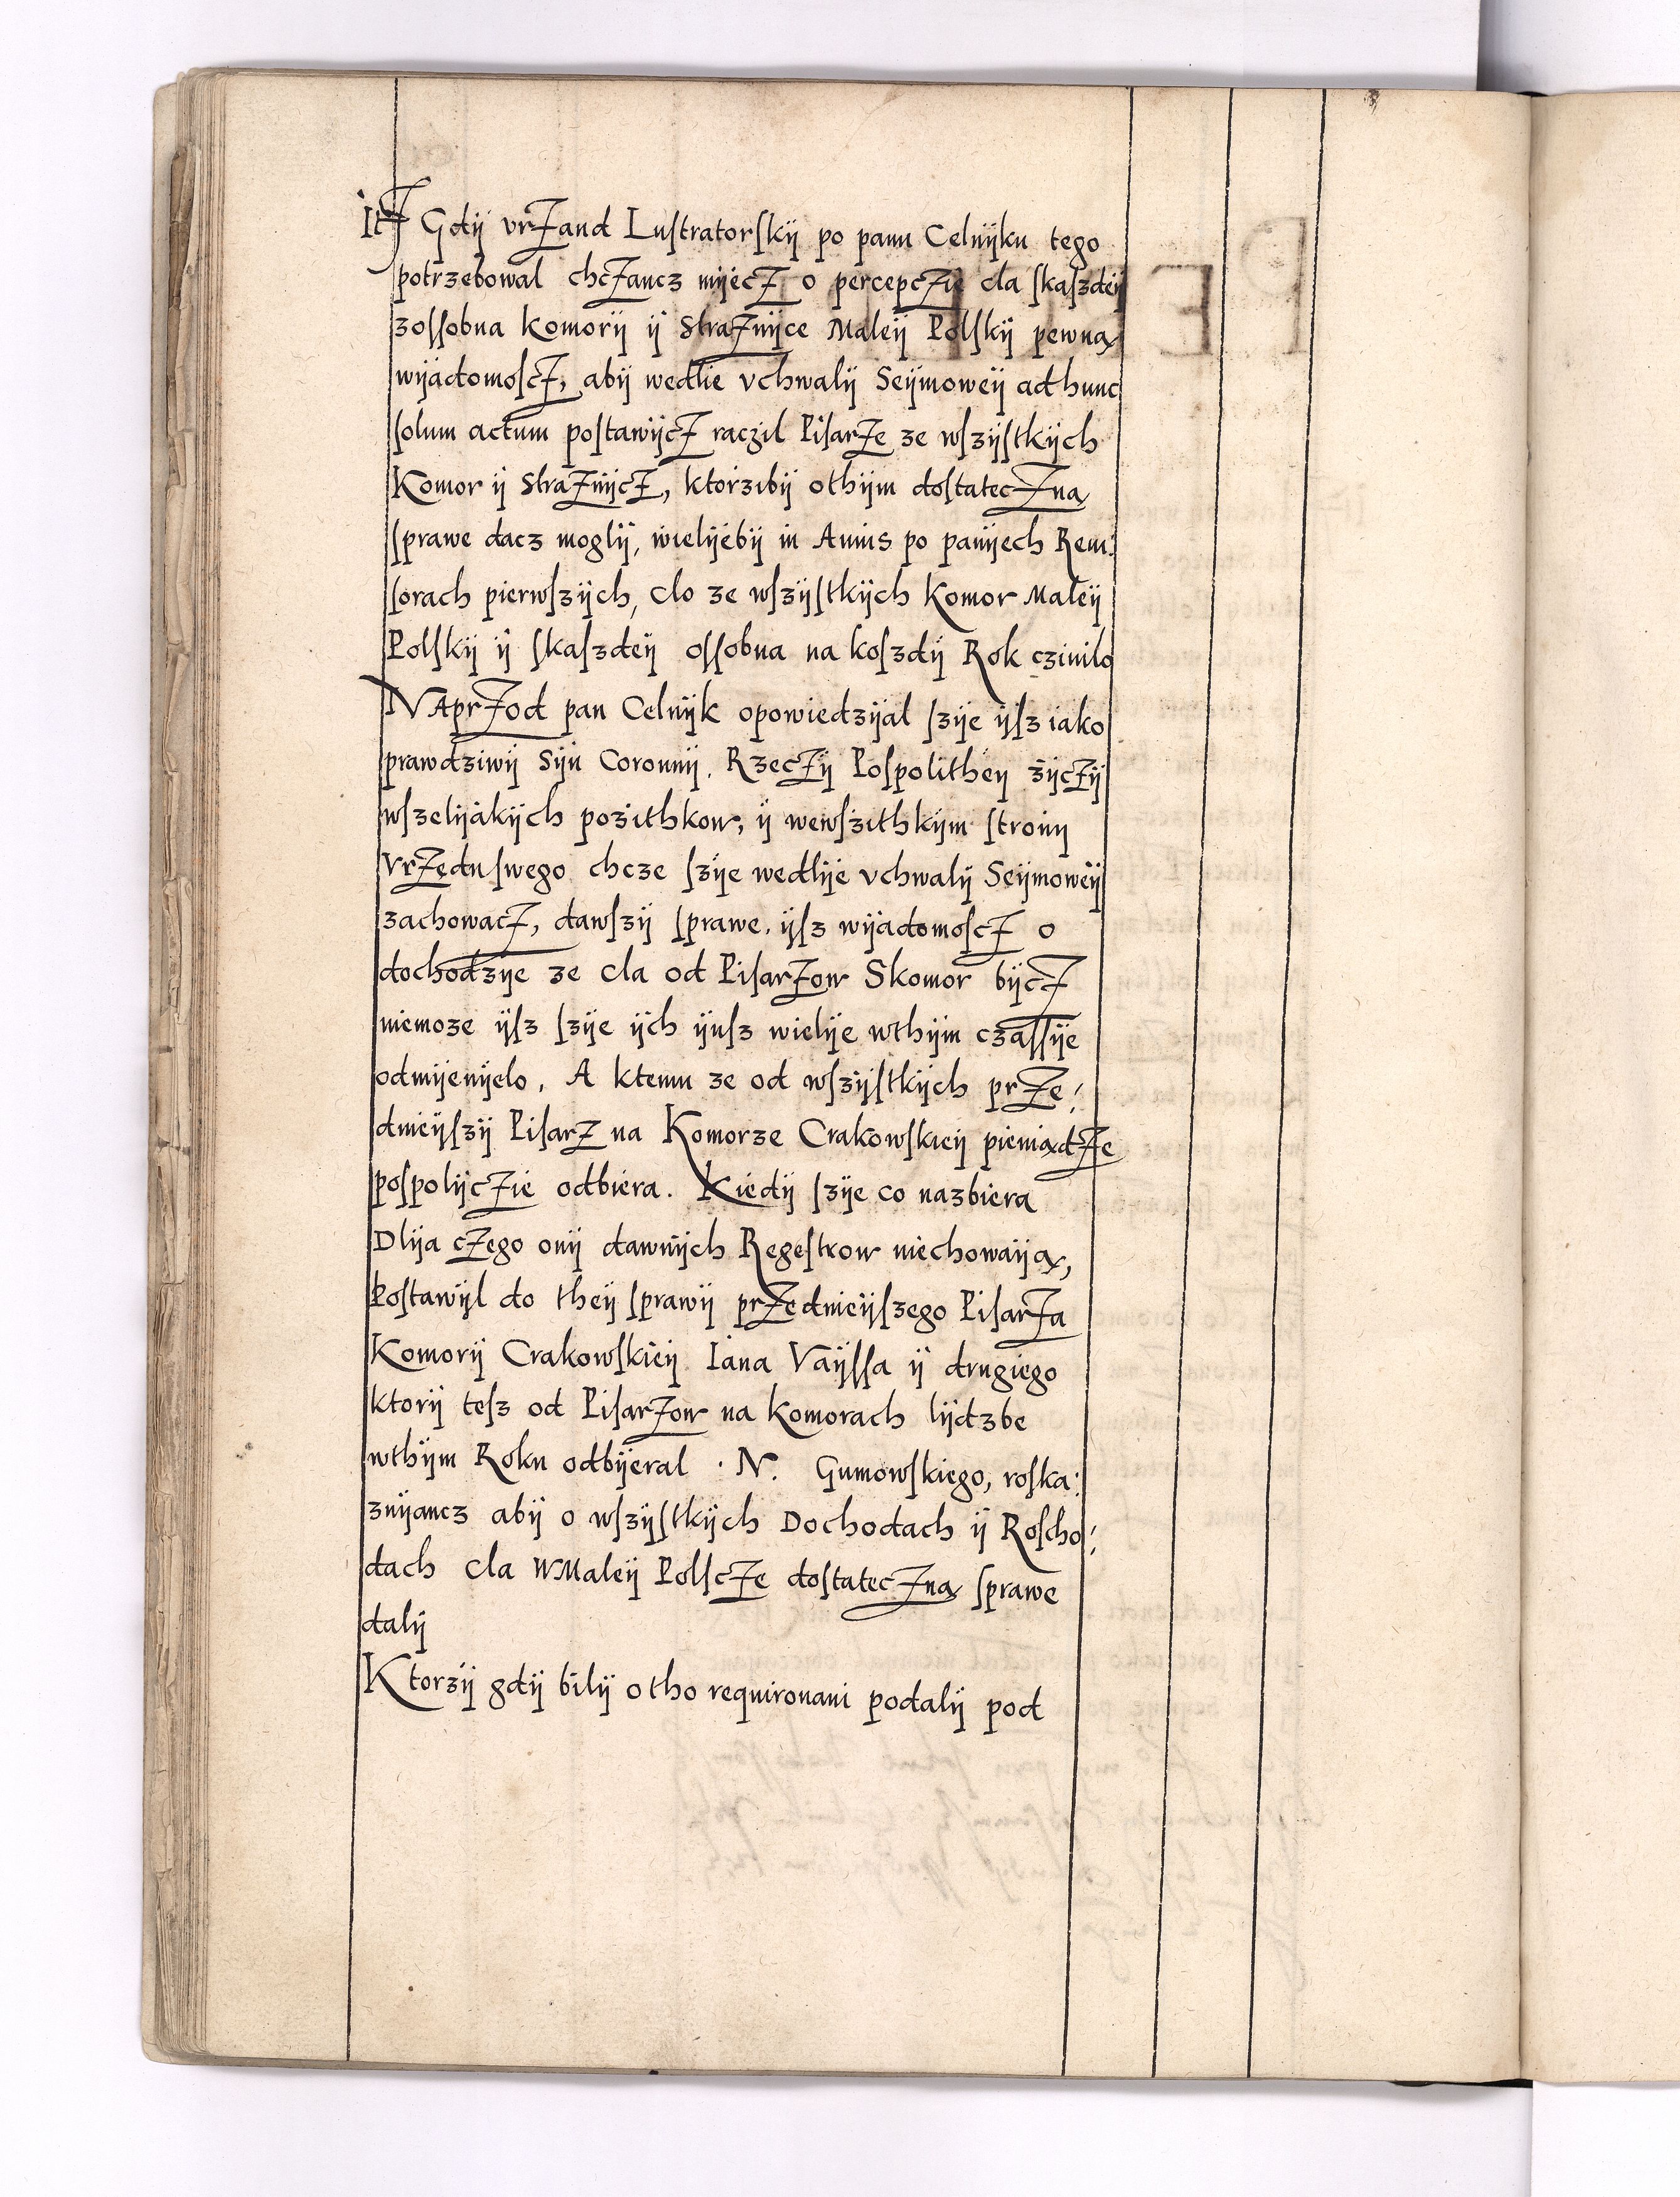 It͠ Gdÿ vrZand Luſtratorſkÿ po panu Celnÿku tego
potrzebowal chcZancz mÿecZ o percepcZie cla ſkaſzdeÿ
zoſſobna komorÿ ÿ StraZnÿce Maleÿ Polſkÿ pewną
wÿadomoſcZ, abÿ wedlie vchwalÿ Seÿmoweÿ ad hunc
ſolum actum poſtawÿcZ raczil PiſarZe ze wſzÿſtkÿch
Komor ÿ StraZnÿcZ, ktorzibÿ othÿm doſtatecZną
ſprawe dacz moglÿ, wielÿebÿ in Annis po panÿech Reui:
ſorach pierwſzÿch, clo ze wſzÿſtkÿch Komor Maleÿ
Polſkÿ ÿ ſkaſzdeÿ oſſobna na koſzdÿ Rok czinilo
NAprZod pan Celnÿk opowiedzÿal ſzÿe ÿſz iako
prawdziwÿ Sÿn Coronnÿ. RzecZÿ Poſpolitheÿ zÿcZÿ
wſzelÿakÿch pozithkow, ÿ wewſzithkÿm ſtronÿ
VrZędu ſwego chcze ſzÿe wedlÿe vchwalÿ Seÿmoweÿ
zachowacZ, dawſzÿ ſprawe, ÿſz wÿadomoſcZ o
dochodzÿe ze cla od PiſarZow Skomor bÿcZ
niemoze ÿſz ſzÿe ÿch ÿuſz wielÿe wthÿm czaſſÿe
odmÿenÿelo. A ktemu ze od wſzÿſtkÿch prZe:
dnieÿſzÿ PiſarZ na Komorze Crakowſkieÿ pieniądZe
poſpolÿcZie odbiera. Kiedÿ ſzÿe co nazbiera
Dlÿa cZego onÿ dawnÿch Regeſtrow niechowaÿą,
Poſtawÿl do theÿ ſprawÿ prZednieÿſzego PiſarZa
Komorÿ Crakowſkieÿ Iana Vaÿſſa ÿ drugiego
ktorÿ teſz od PiſarZow na komorach lÿdzbe
wthÿm Roku odbÿeral . N. Gumowſkiego, roſka:
zuÿancz abÿ o wſzÿſtkÿch Dochodach ÿ Roſcho:
dach cla WMaleÿ PolſcZe doſtatecZną ſprawe
dalÿ
Ktorzÿ gdÿ bilÿ otho requirouani podalÿ pod